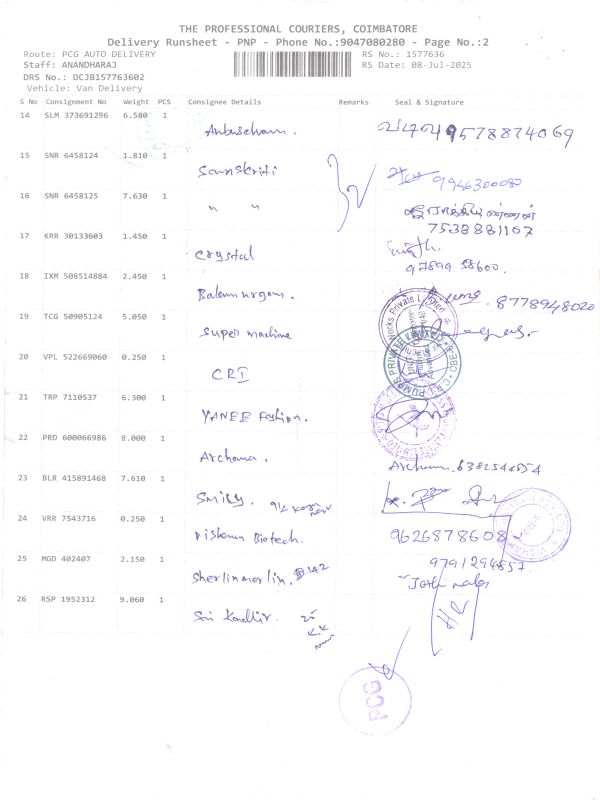 THE PROFESSIONAL COURIERS, COIMBATORE
Delivery Runsheet - PNP - Phone No.:9047080280 - Page No.:2
Route: PCG AUTO DELIVERY
RS No.: 1577636
Staff: ANANDHARAJ
RS Date: 08-Jul-2025
DRS No.: DCJB157763602
Vehicle: Van Delivery
S No Consignment No Weight PCS Consignee Details Remarks Seal & Signature
14 SLM 373691296 6.580 1
9578874069
15 SNR 6458124 1.810 1
Sanskriti
9946300080
16 SNR 6458125 7.630 1
" "
7538881107
17 KRR 30133603 1.450 1
Crystal
18 IXM 508514884 2.450 1
Balamurugan.
8778948020
19 TCG 50905124 5.050 1
Super machine
20 VPL 522669060 0.250 1
CRI
21 TRP 7110537 6.300 1
YANEE Fashion.
22 PRD 600066986 8.000 1
Archana.
23 BLR 415891468 7.610 1
Smily.
24 VRR 7543716 0.250 1
Biotech.
9626878608
25 MGD 402407 2.150 1
Sherlinmerlin.
9791294857
26 RSP 1952312 9.060 1
Sai Kadhir.
PCG